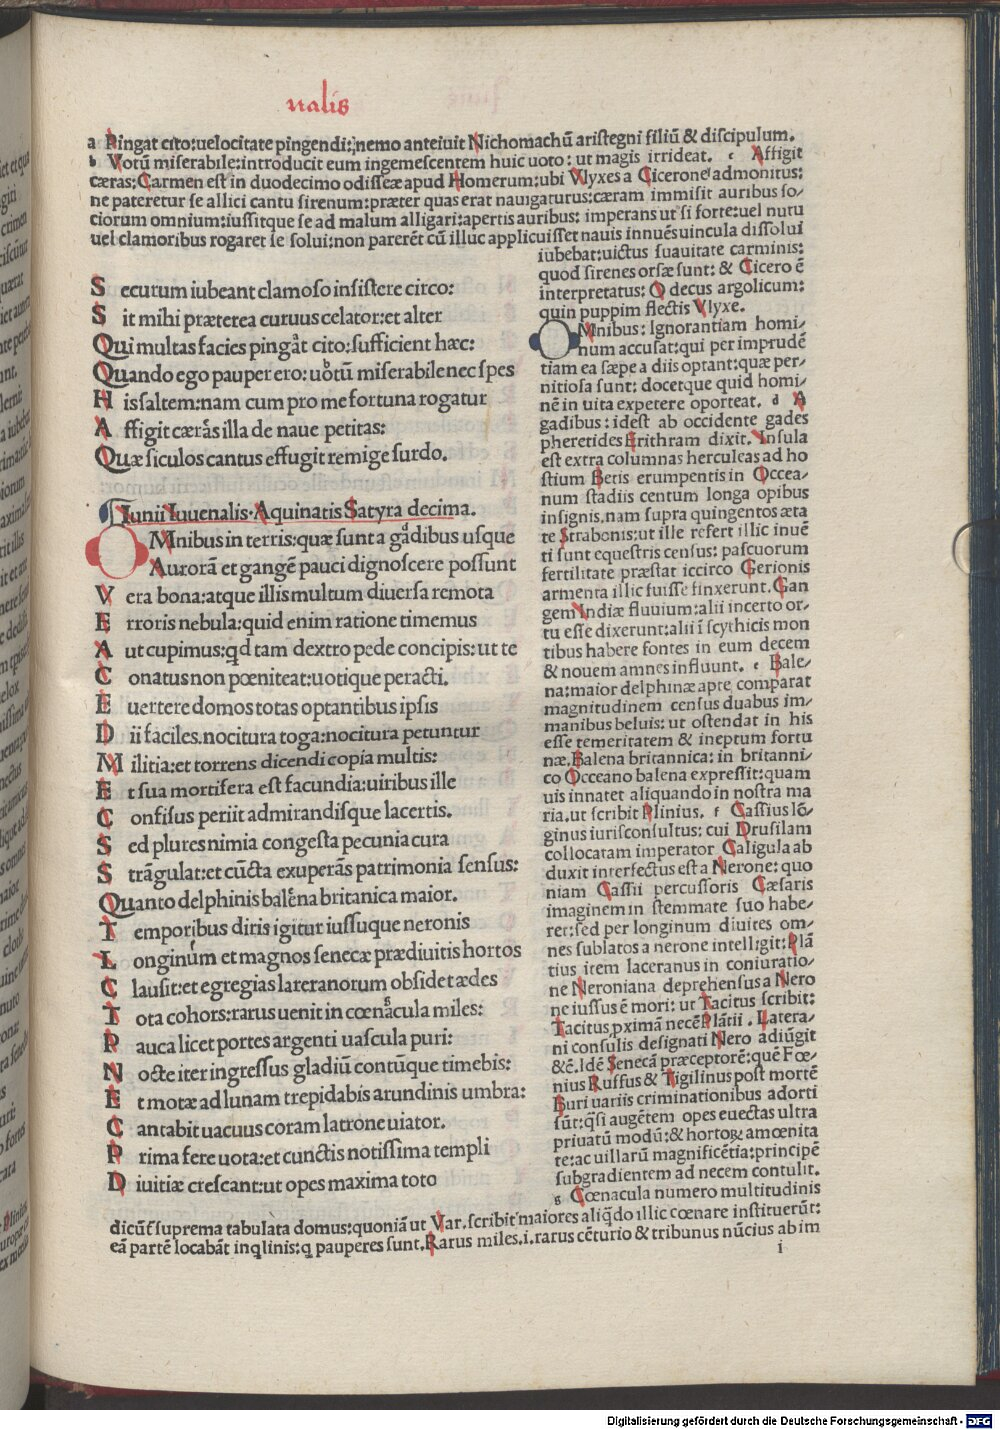 nalis
a Pingat cito: uelocitate pingendi: nemo anteiuit Nichomachū aristegni filiū & discipulum.
b Votū miserabile: introducit eum ingemescentem huic uoto: ut magis irrideat. c Affigit
cæras: Carmen est in duodecimo odisseæ apud Homerum: ubi Vlyxes a Cicerone admonitus:
ne pateretur se allici cantu sirenum: præter quas erat nauigaturus: cæram immisit auribus so/
ciorum omnium: iussitque se ad malum alligari: apertis auribus: imperans ut si forte: uel nutu
uel clamoribus rogaret se solui: non parerēt cū illuc applicuisset nauis innuēs uincula dissolui
iubebat: uictus suauitate carminis:
quod sirenes orsæ sunt: & Cicero ē
interpretatus: O decus argolicum:
quin puppim flectis Vlyxe.
S ecurum iubeant clamoso insistere circo:
S it mihi præterea curuus celator: et alter
Qui multas facies pingat a cito: sufficient hæc:
Quando ego pauper ero: uotū b miserabile nec spes
H is saltem: nam cum pro me fortuna rogatur
A ffigit cæras c illa de naue petitas:
Quæ siculos cantus effugit remige surdo.
Iunii Iuuenalis Aquinatis Satyra decima.
O Mnibus in terris: quæ sunt a gadibus d usque
Aurorā et gangē pauci dignoscere possunt
V era bona: atque illis multum diuersa remota
E rroris nebula: quid enim ratione timemus
A ut cupimus: qd tam dextro pede concipis: ut te
C onatus non pœniteat: uotique peracti.
E uertere domos totas optantibus ipsis
D ii faciles. nocitura toga: nocitura petuntur
M ilitia: et torrens dicendi copia multis:
E t sua mortifera est facundia: uiribus ille
C onfisus periit admirandisque lacertis.
S ed plures nimia congesta pecunia cura
S trāgulat: et cūcta exuperās patrimonia sensus:
Quanto delphinis balena e britanica maior.
T emporibus diris igitur iussuque neronis
L onginum f et magnos senecæ prædiuitis hortos
C lausit: et egregias lateranorum obsidet ædes
T ota cohors: rarus uenit in cœnacula g miles:
P auca licet portes argenti uascula puri:
N octe iter ingressus gladiū contūque timebis:
E t motæ ad lunam trepidabis arundinis umbra:
C antabit uacuus coram latrone uiator.
P rima fere uota: et cunctis notissima templi
D iuitiæ crescant: ut opes maxima toto
O Mnibus: Ignorantiam homi/
num accusat: qui per imprudē
tiam ea sæpe a diis optant: quæ per/
nitiosa sunt: docetque quid homi/
nē in uita expetere oporteat. d A
gadibus: idest ab occidente gades
pheretides Erithram dixit. Insula
est extra columnas herculeas ad ho
stium Betis erumpentis in Occea/
num stadiis centum longa opibus
insignis. nam supra quingentos æta
te Strabonis: ut ille refert illic inuē
ti sunt equestris census: pascuorum
fertilitate præstat iccirco Gerionis
armenta illic fuisse finxerunt. Gan
gem Indiæ fluuium: alii incerto or/
tu esse dixerunt: alii ī scythicis mon
tibus habere fontes in eum decem
& nouem amnes influunt. e Bale/
na: maior delphinæ apte comparat
magnitudinem census duabus im/
manibus beluis: ut ostendat in his
esse temeritatem & ineptum fortu
næ. Balena britannica: in britanni/
co Occeano balena expressit: quam
uis innatet aliquando in nostra ma
ria. ut scribit Plinius. f Cassius lō/
ginus iurisconsultus: cui Drusilam
collocatam imperator Caligula ab
duxit interfectus est a Nerone: quo
niam Cassii percussoris Cæsaris
imaginem in stemmate suo habe/
ret: sed per longinum diuites om/
nes sublatos a nerone intelligit: Plā
tius item laceranus in coniuratio/
ne Neroniana deprehensus a Nero
ne iussus ē mori: ut Tacitus scribit:
Tacitus. pximā necē Plātii. Latera/
ni consulis designati Nero adiūgit
&c. Idē Senecā præceptorē: quē Fœ/
nius Ruffus & Tigilinus post mortē
Burri uariis criminationibus adorti
sūt: qsi augētem opes euectas ultra
priuatū modū: & hortoꝝ amœnita
te: ac uillarū magnificētia: principē
subgradientem ad necem contulit.
g Cœnacula numero multitudinis
dicūt suprema tabulata domus: quoniā ut Var. scribit maiores aliqdo illic cœnare instituerūt:
eā partē locabāt inqlinis: q pauperes sunt. Rarus miles. i. rarus cēturio & tribunus nūcius ab im
i
Digitalisierung gefördert durch die Deutsche Forschungsgemeinschaft - DFG